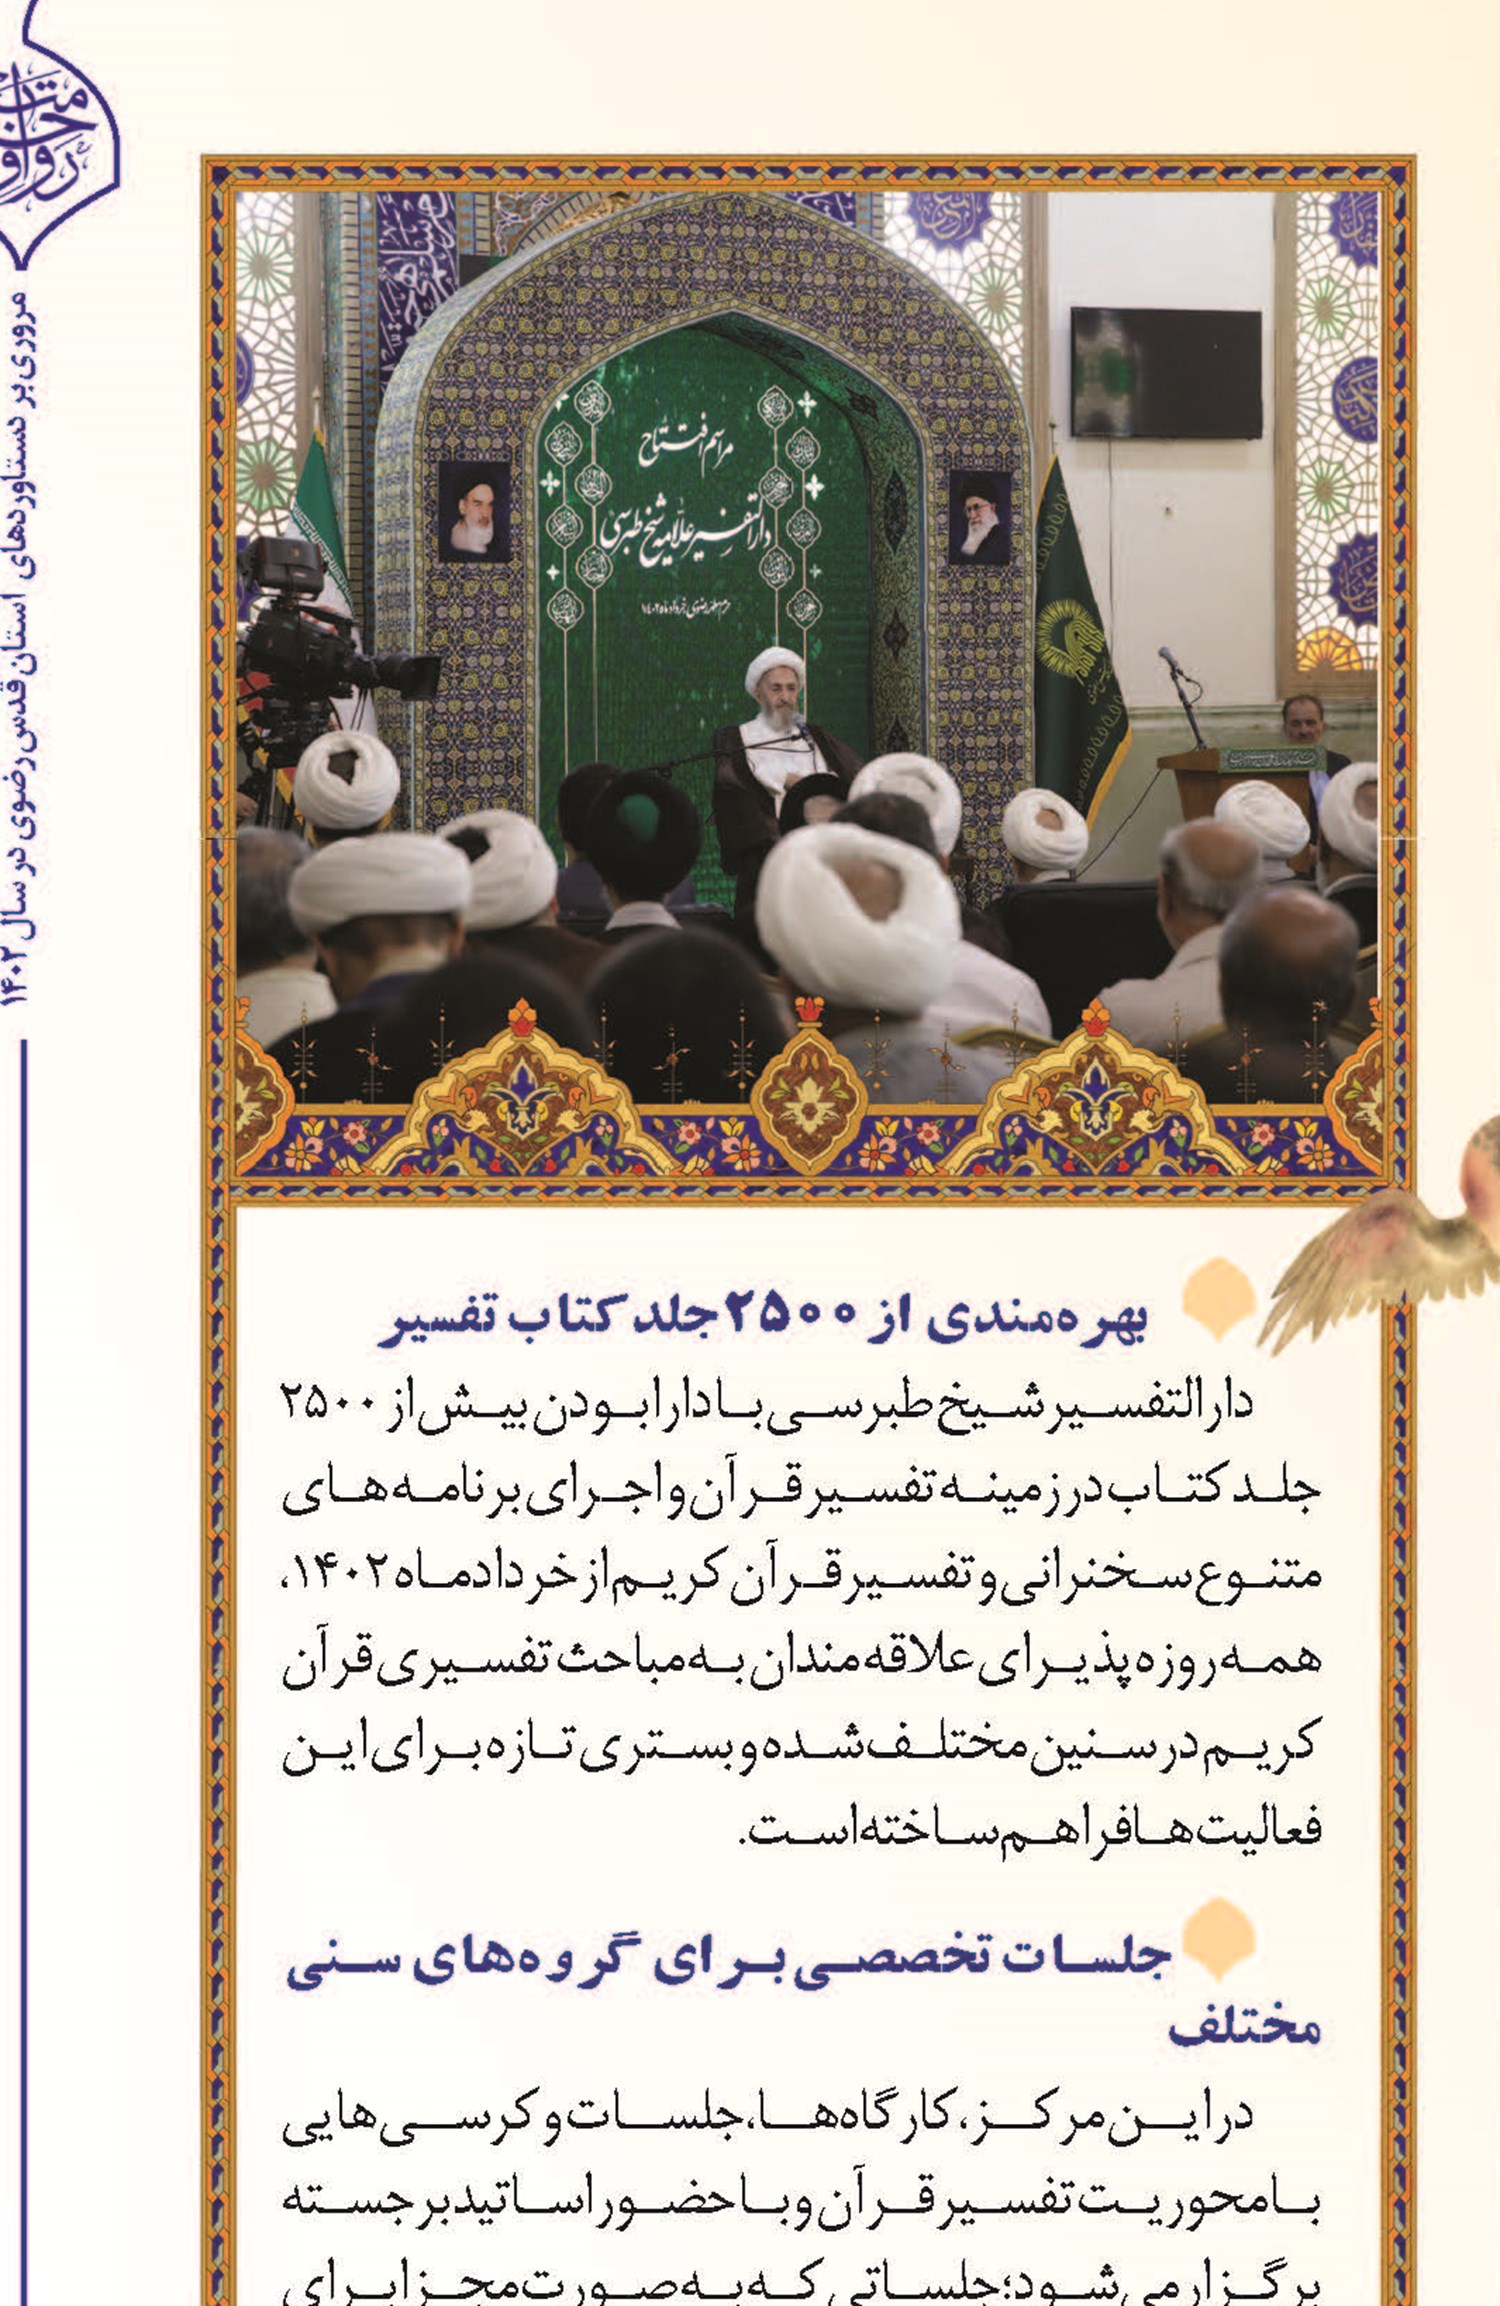 مروری بر دستاوردهای آستان قدس رضوی در سال ۱۴۰۲
مراسم افتتاح
دارالتفسیر علامه شیخ طبرسی
بهره‌مندی از ۲۵۰۰ جلد کتاب تفسیر
دارالتفسیر شیخ طبرسی با دارا بودن بیش از ۲۵۰۰
جلد کتاب در زمینه تفسیر قرآن و اجرای برنامه‌های
متنوع سخنرانی و تفسیر قرآن کریم از خرداد ماه ۱۴۰۲،
همه روزه پذیرای علاقه‌مندان به مباحث تفسیری قرآن
کریم در سنین مختلف شده و بستری تازه برای این
فعالیت‌ها فراهم ساخته است.
جلسات تخصصی برای گروه‌های سنی
مختلف
در این مرکز، کارگاه‌ها، جلسات و کرسی‌هایی
با محوریت تفسیر قرآن و با حضور اساتید برجسته
برگزار می‌شود؛ جلساتی که به صورت مجزا برای